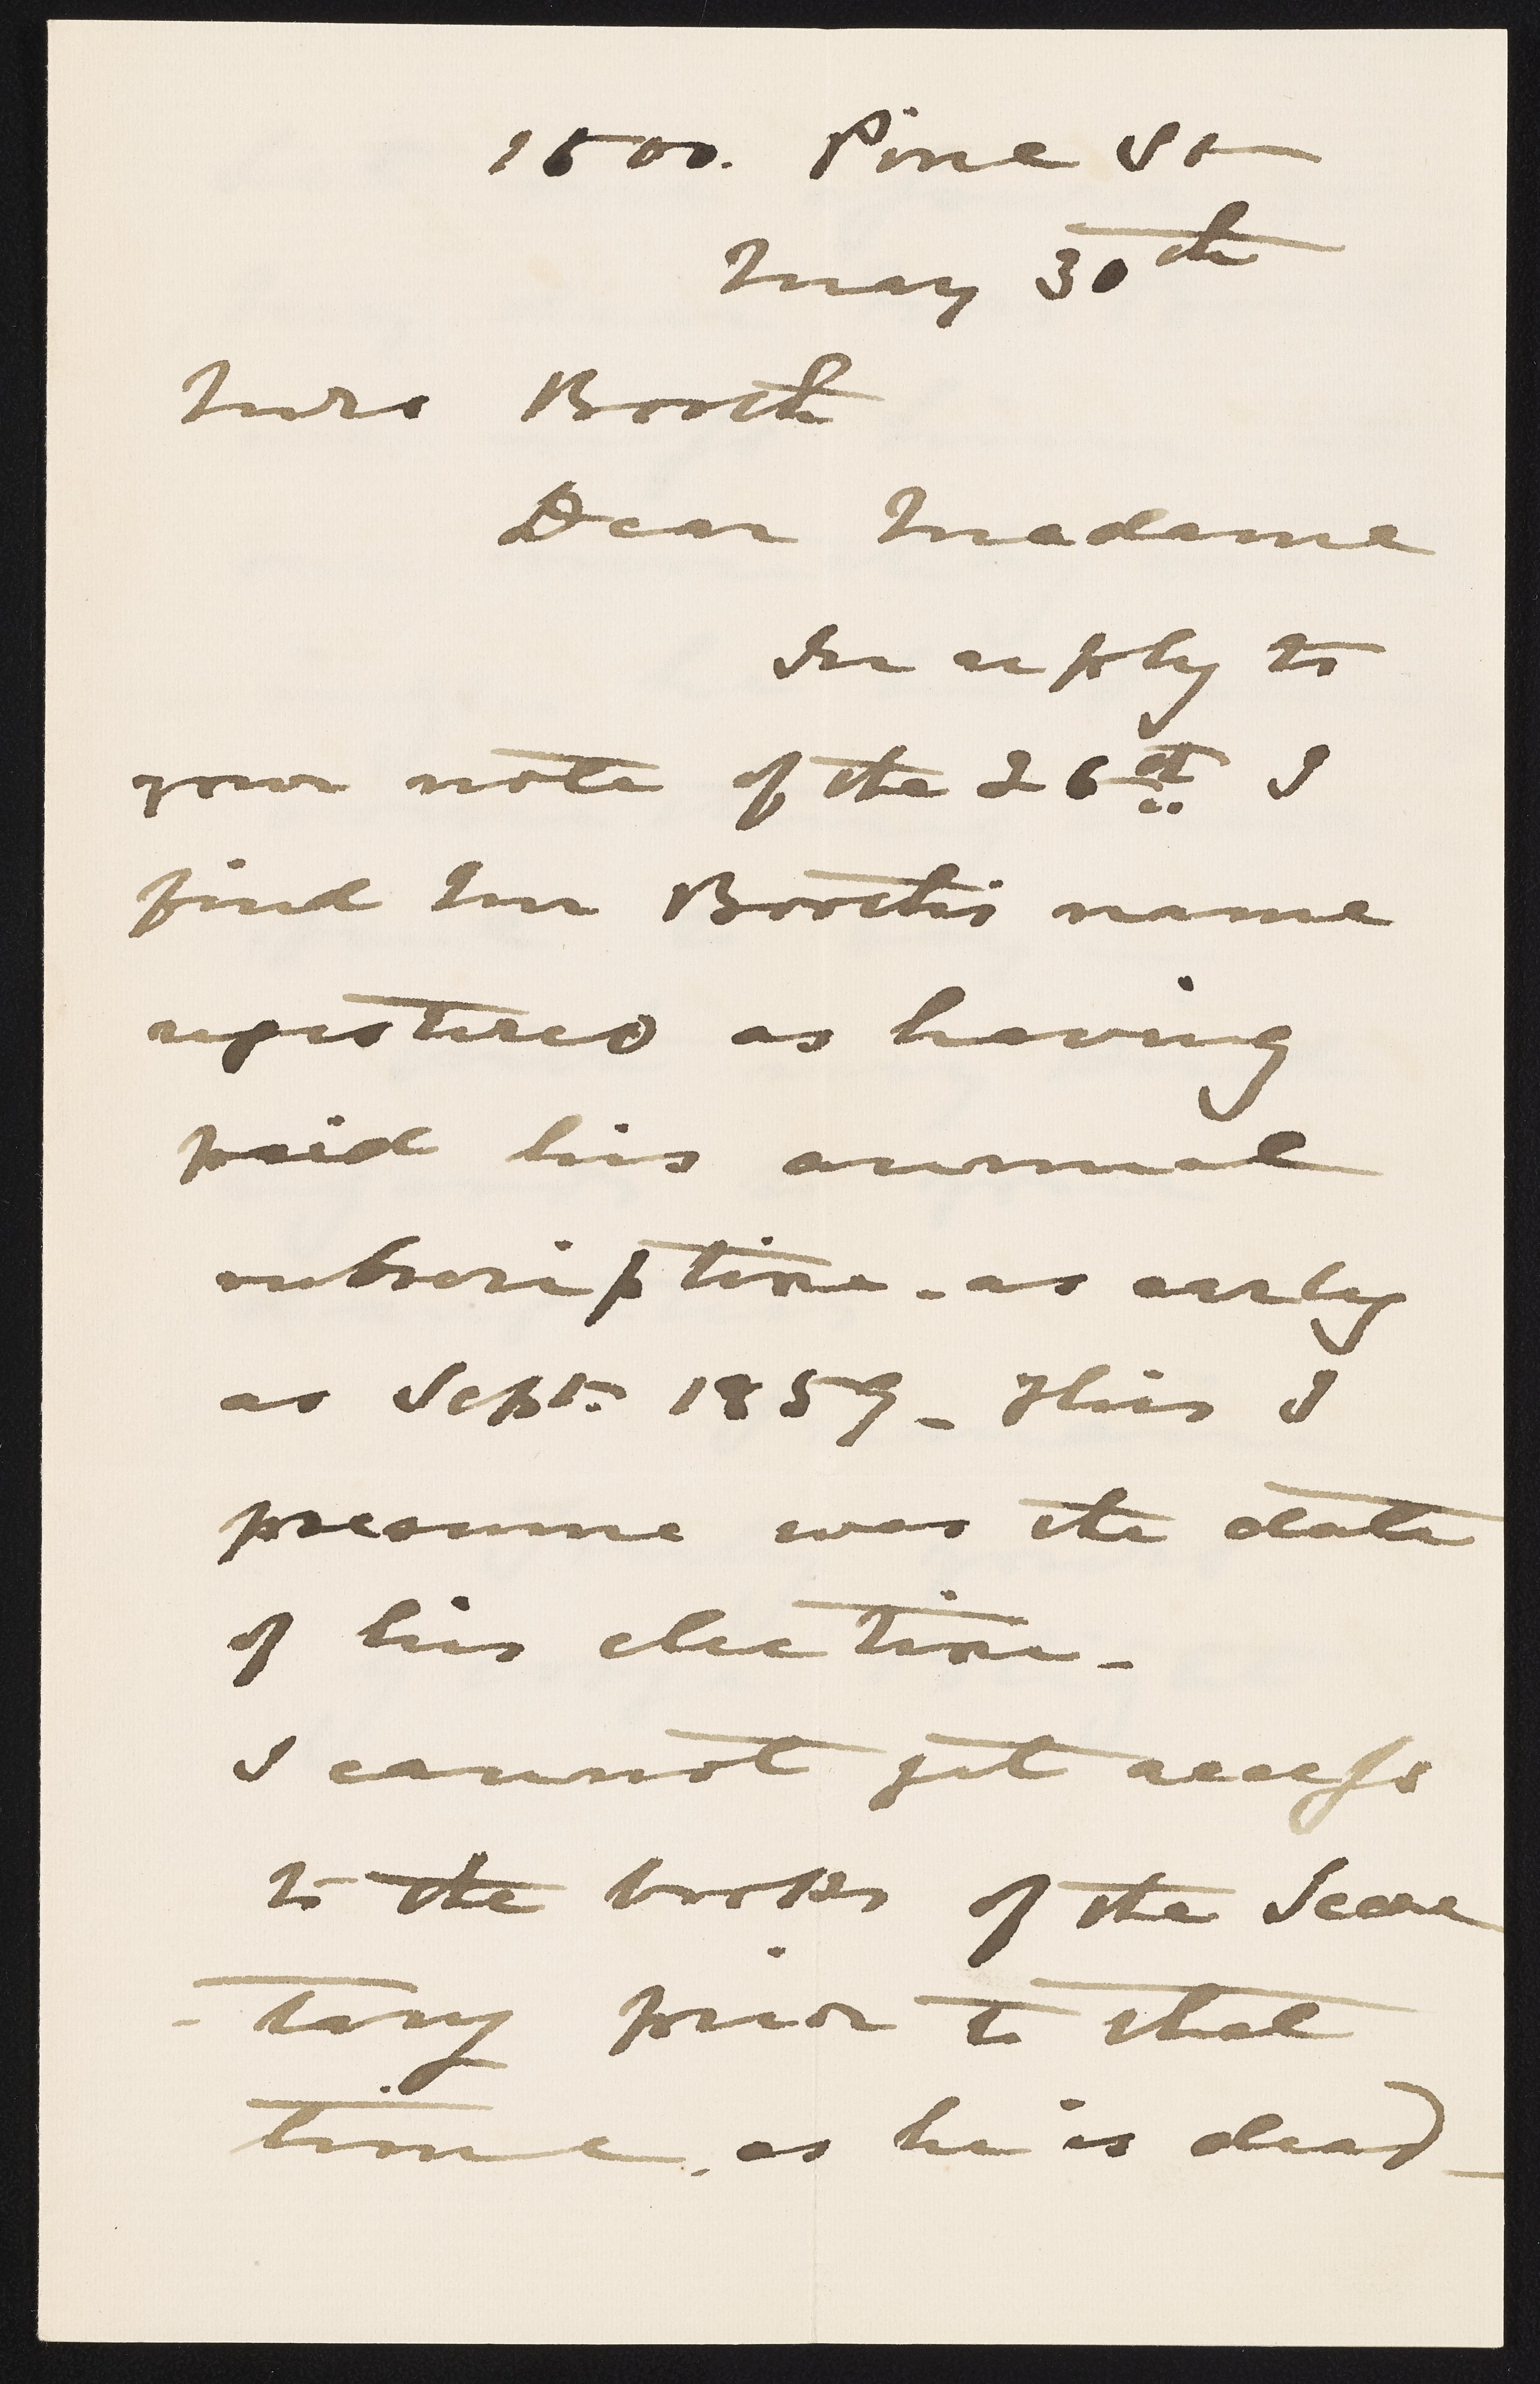 1500. Pine St
May 30th
Mrs Booth
Dear Madame
In reply to
your note of the 26th I
find Mr Booth's name
registered as having
paid his annual
subscription - as early
as Sept. 1859 - This I
presume was the date
of his election -
I cannot get access
to the books of the Secre
- tary prior to that
time, as he is dead -